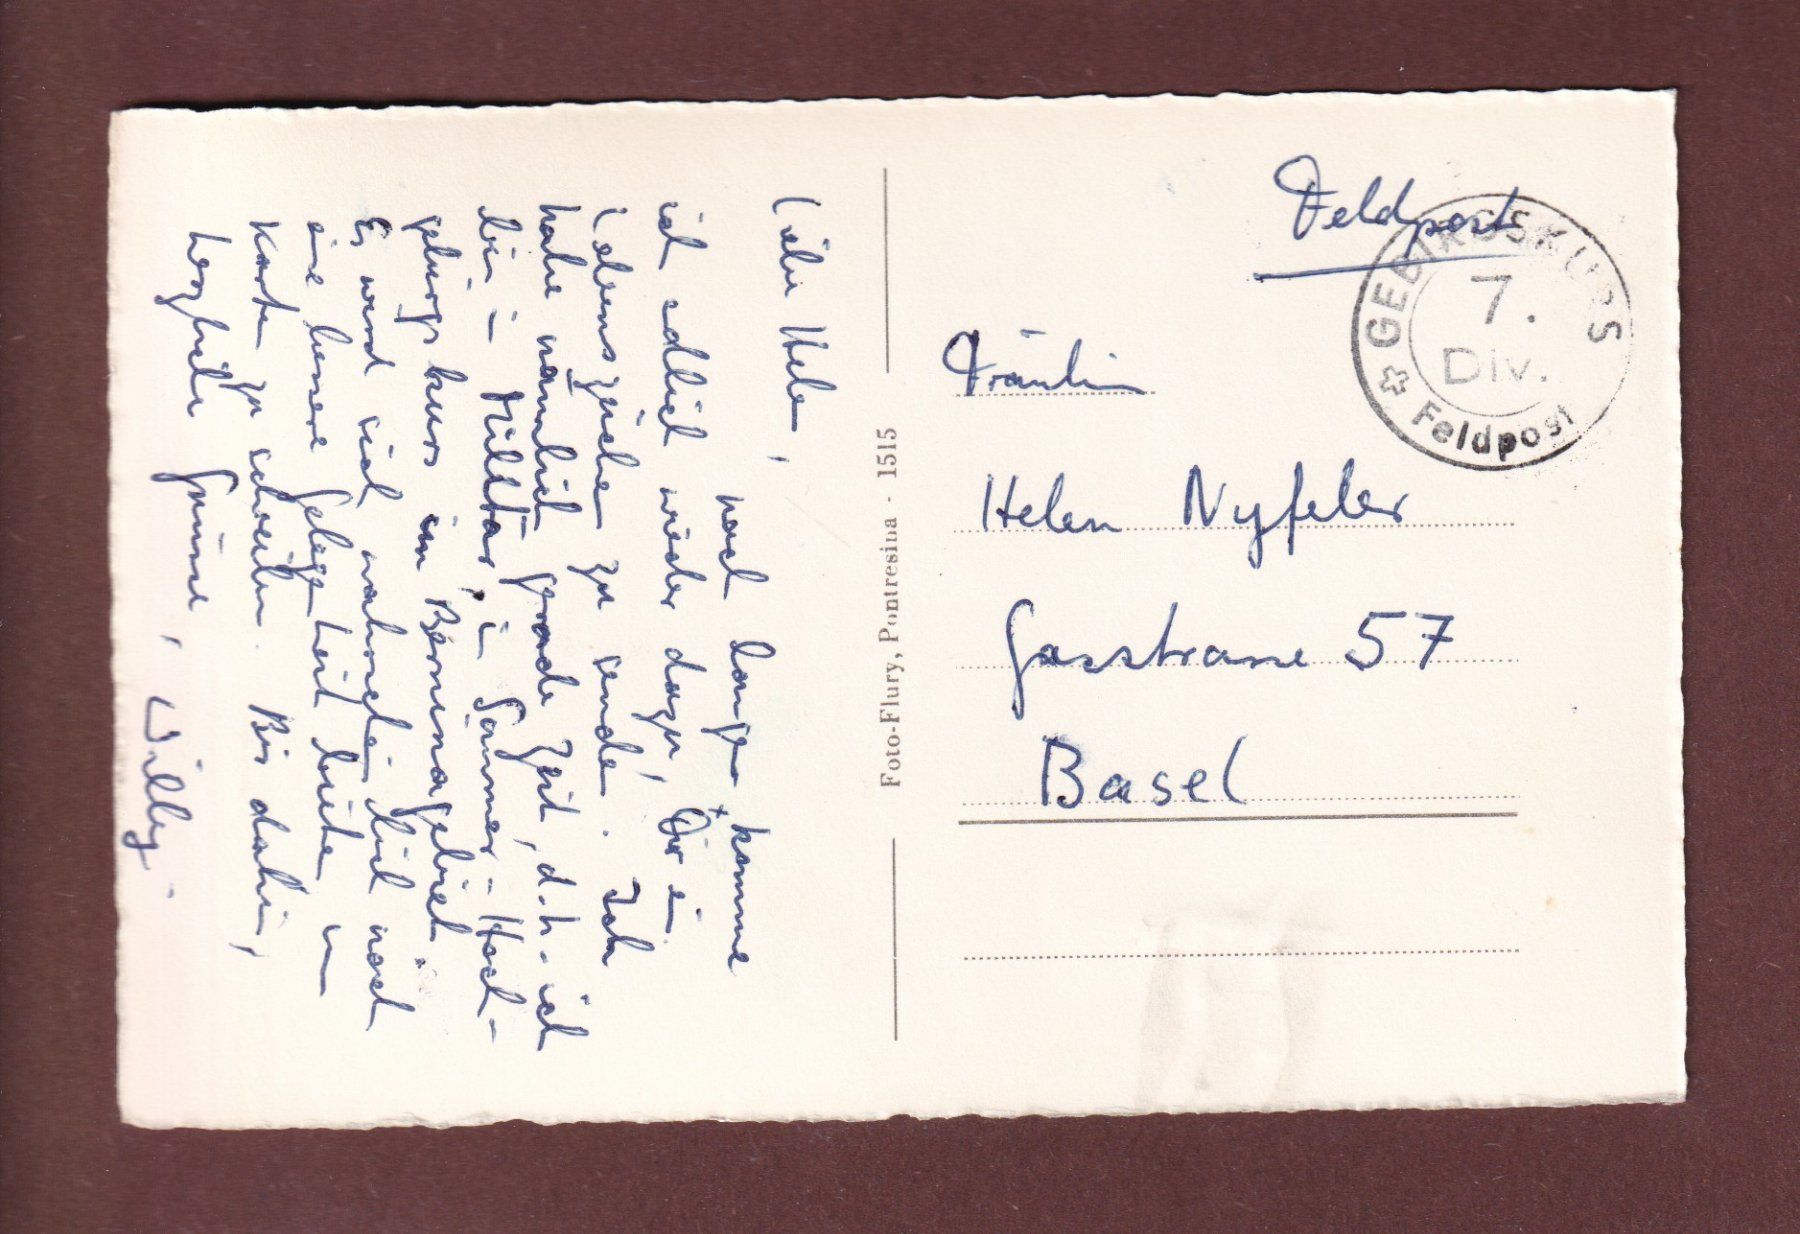 Liebe Hele,
nach langem komme
ich endlich wieder dazu, Dir ein
Lebenszeichen zu senden. Ich
habe nämlich gerade Zeit, d.h. ich
bin im Militär, im Sommer-Hoch-
gebirgskurs im Berninagebiet.
Es wird sich wahrscheinlich noch
eine bessere Gelegenheit bieten um
Karten zu schreiben. Bis dahin,
herzliche Grüsse,
Willy.
Foto-Flury, Pontresina - 1515
Feldpost
GEBIRGSKURS
7.
Div.
Feldpost
Fräulein
Helen Nyfeler
Gasstrasse 57
Basel